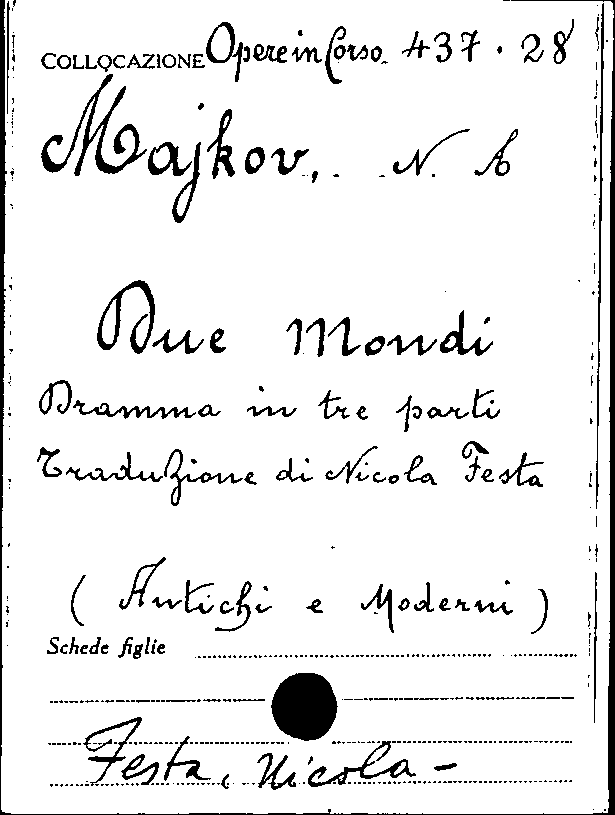 COLLOCAZIONE Opere in Corso. 437.28
Majkov, N. A
Due Mondi
Dramma in tre parti
Traduzione di Nicola Festa
(Antichi e Moderni)
Schede figlie
Festa, Nicola -